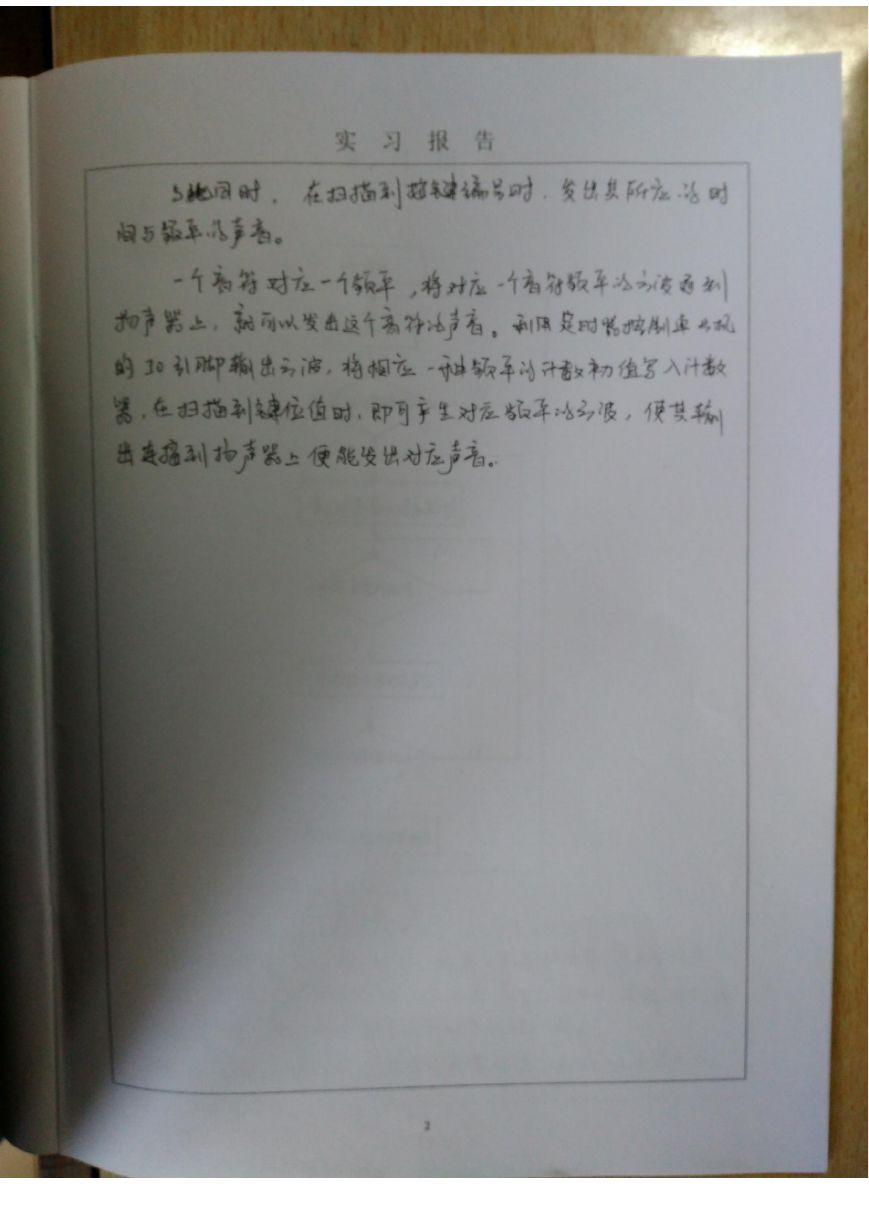 实习报告
与此同时，在扫描到按键编号时，发出其所应的时
间与频率的声音。
一个音符对应一个频率，将对应一个音符频率的方波送到
扬声器上，就可以发出这个音符的声音。利用定时器控制单片机
的IO引脚输出方波，将相应一种频率的计数初值写入计数
器，在扫描到键位值时，即可产生对应频率的方波，使其输
出连接到扬声器上便能发出对应声音。
2